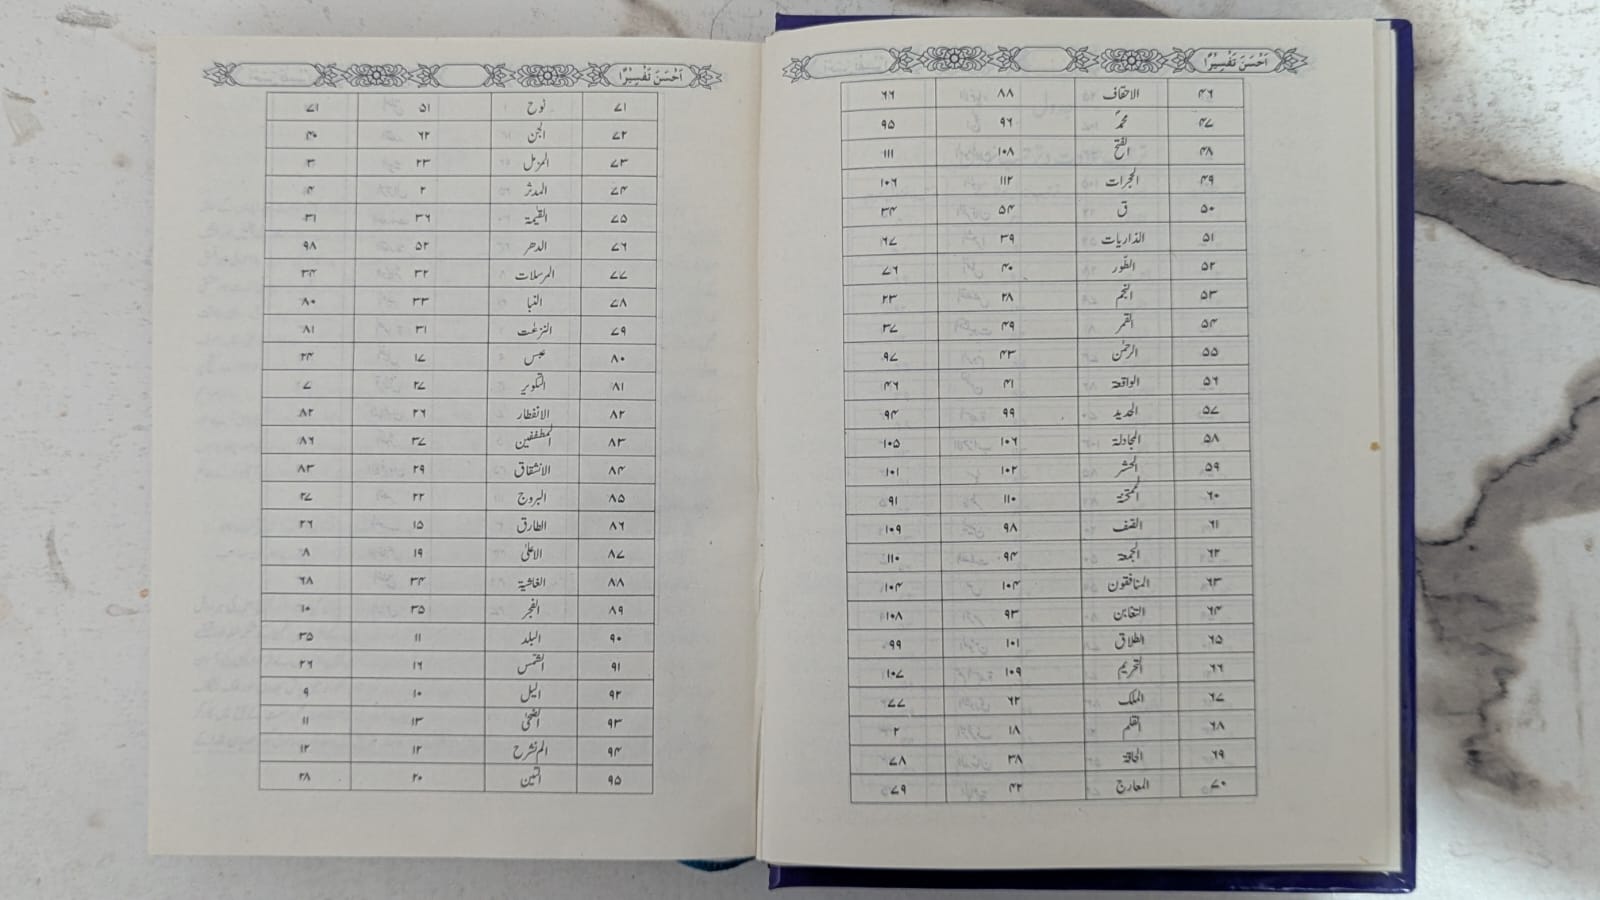 اَحْسَنَ تَفْسِيْرًا
۴۶ الاحقاف ۸۸ ۶۶
۴۷ محمدؐ ۹۶ ۹۵
۴۸ الفتح ۱۰۸ ۱۱۱
۴۹ الحجرات ۱۱۲ ۱۰۶
۵۰ ق ۵۴ ۳۴
۵۱ الذاریات ۳۹ ۶۷
۵۲ الطّور ۴۰ ۷۶
۵۳ النجم ۲۸ ۲۳
۵۴ القمر ۴۹ ۳۷
۵۵ الرحمٰن ۴۳ ۹۷
۵۶ الواقعۃ ۴۱ ۴۶
۵۷ الحدید ۹۹ ۹۴
۵۸ المجادلۃ ۱۰۶ ۱۰۵
۵۹ الحشر ۱۰۲ ۱۰۱
۶۰ الممتحنۃ ۱۱۰ ۹۱
۶۱ الصّف ۹۸ ۱۰۹
۶۲ الجمعۃ ۹۴ ۱۱۰
۶۳ المنافقون ۱۰۴ ۱۰۴
۶۴ التغابن ۹۳ ۱۰۸
۶۵ الطلاق ۱۰۱ ۹۹
۶۶ التحریم ۱۰۹ ۱۰۷
۶۷ الملک ۶۲ ۷۷
۶۸ القلم ۱۸ ۲
۶۹ الحاقۃ ۳۸ ۷۸
۷۰ المعارج ۴۲ ۷۹
اَحْسَنَ تَفْسِيْرًا
۷۱ نوح ۵۱ ۷۱
۷۲ الجن ۶۲ ۴۰
۷۳ المزمل ۲۳ ۳
۷۴ المدثر ۲ ۴
۷۵ القیٰمۃ ۳۶ ۳۱
۷۶ الدھر ۵۲ ۹۸
۷۷ المرسلات ۳۲ ۳۴
۷۸ النبا ۳۳ ۸۰
۷۹ النزعٰت ۳۱ ۸۱
۸۰ عبس ۱۷ ۲۴
۸۱ التکویر ۲۷ ۷
۸۲ الانفطار ۲۶ ۸۲
۸۳ المطففین ۳۷ ۸۶
۸۴ الانشقاق ۲۹ ۸۳
۸۵ البروج ۲۲ ۲۷
۸۶ الطارق ۱۵ ۲۶
۸۷ الاعلیٰ ۱۹ ۸
۸۸ الغاشیۃ ۳۴ ۶۸
۸۹ الفجر ۳۵ ۱۰
۹۰ البلد ۱۱ ۳۵
۹۱ الشمس ۱۶ ۲۶
۹۲ الیل ۱۰ ۹
۹۳ الضحیٰ ۱۳ ۱۱
۹۴ الم نشرح ۱۲ ۱۲
۹۵ التین ۲۰ ۲۸